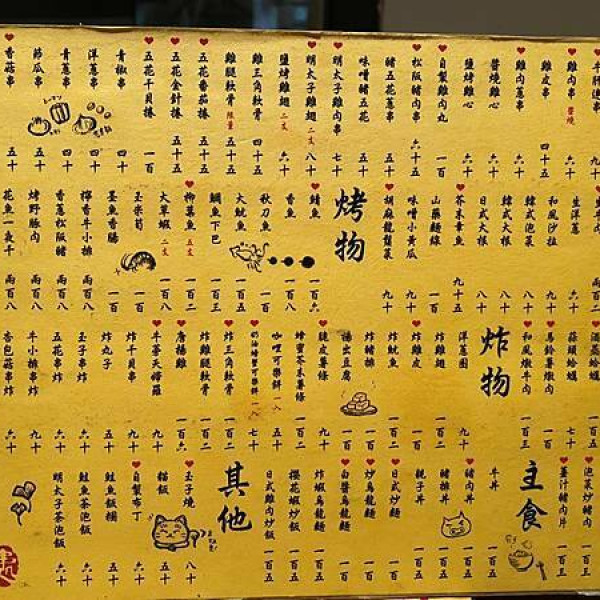 雞肉串 醬燒 六十
雞皮串 四十五
雞肉蔥串 六十
醬燒雞心 六十
鹽烤雞心 六十
自製雞肉丸 一百
松阪豬串 六十五
豬五花蔥串
味噌豬五花 五十
明太子雞肉串 七十
明太子雞翅 二支 八十
鹽烤雞翅 二支 六十
雞三角軟骨 四十五
雞腿軟骨 限量 五十五
五花番茄捲 五十五
五花金針捲 五十五
五花干貝捲 一百
青椒串 四十
洋蔥串 四十
青蔥串 四十
節瓜串 五十
香菇串 五十
生洋蔥 六十
和風沙拉 九十
韓式泡菜 八十
韓式大根 八十
日式大根 八十
芥末章魚 九十五
山藥麵線 一百
味噌小黃瓜 九十
胡麻龍鬚菜 九十
烤物
鯖魚 一百六
香魚 一百八
秋刀魚 一百
大魷魚 一百五
鯛魚下巴 一百三
柳葉魚 五支 一百
大草蝦 二支 一百二
玉米筍 一百
墨魚香腸 一百
檸香牛小排 兩百八
香蔥松阪豬 兩百八
烤野豚肉 兩百八
花魚一夜干 兩百八
酒蒸蛤蠣
蒜頭蛤蠣 七十
馬鈴薯燉肉 一百
和風燉牛肉 一百五
炸物
洋蔥圈 九十
炸雞翅 一百
炸雞皮 一百
炸魷魚 一百二
炸豬排 一百
揚出豆腐 一百
脆皮薯條 九十
蜂蜜芥末薯條 一百
咖哩可樂餅 一入 五十
奶油螃蟹可樂餅 一入 七十
炸三角軟骨 一百二
炸雞腿軟骨 一百二
唐揚雞 一百六
牛蒡天婦羅 九十
炸干貝串 一百
炸丸子 九十
玉子串炸 六十
五花串炸 六十
牛小排串炸 九十
杏包菇串炸 六十
泡菜炒豬肉 一百三
薑汁豬肉片 一百三
主食
牛丼 一百五
豬肉丼
豬排丼 一百五
親子丼 一百五
日式炒麵 一百五
炒烏龍麵 一百五
白醬烏龍麵 一百五
炸蝦烏龍麵 一百五
櫻花蝦炒飯 一百五
日式雞肉炒飯 一百五
其他
玉子燒 八十
貓飯 五十
自製布丁 六十
鮭魚飯糰 六十
鮭魚茶泡飯 六十
明太子茶泡飯 六十